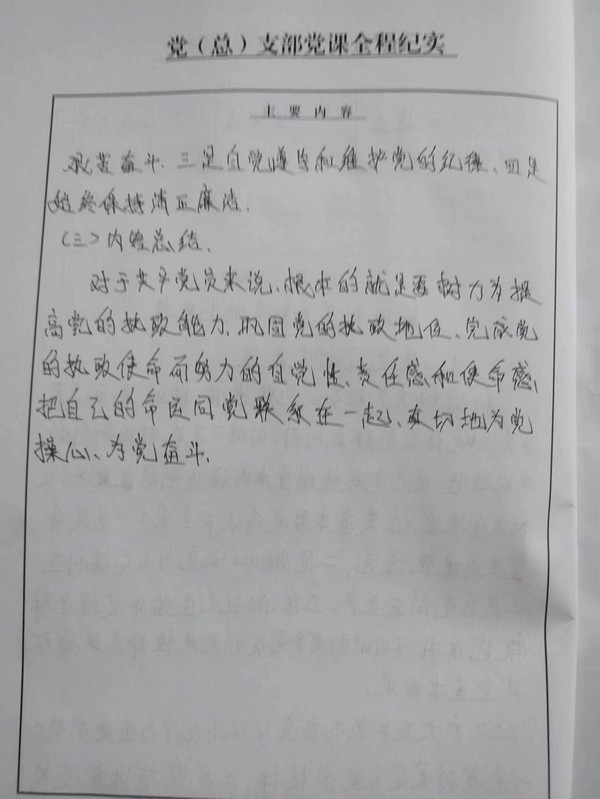 党（总）支部党课全程纪实
主要内容
艰苦奋斗.三是自觉遵守和维护党的纪律、四是
始终保持清正廉洁.
（三）内容总结.
对于共产党员来说、根本的就是要树力为提
高党的执政能力、巩固党的执政地位、完成党
的执政使命而努力的自觉性、责任感和使命感、
把自己的命运同党联系在一起、真切地为党
操心、为党奋斗.